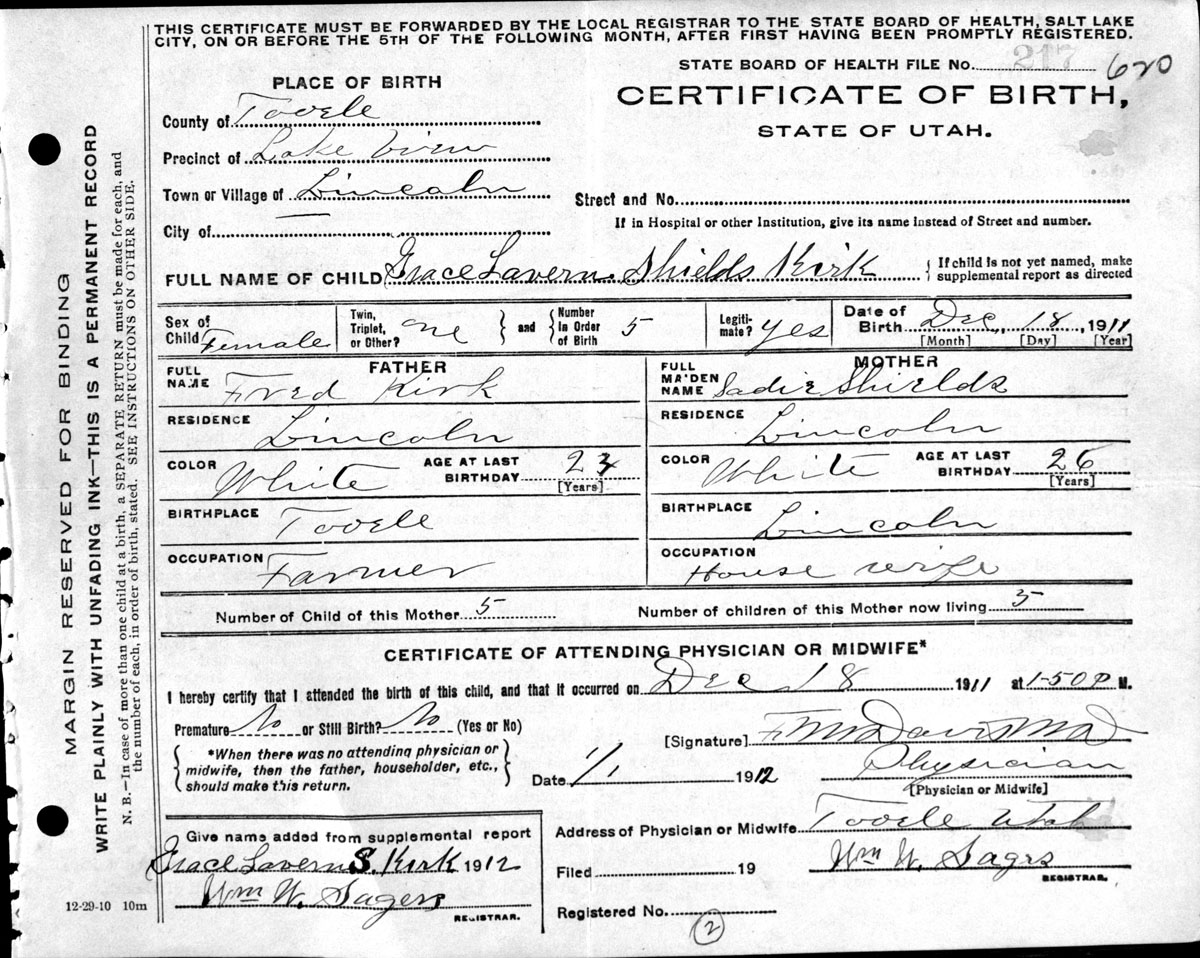 THIS CERTIFICATE MUST BE FORWARDED BY THE LOCAL REGISTRAR TO THE STATE BOARD OF HEALTH, SALT LAKE
CITY, ON OR BEFORE THE 5TH OF THE FOLLOWING MONTH, AFTER FIRST HAVING BEEN PROMPTLY REGISTERED.
STATE BOARD OF HEALTH FILE No. 217 620
PLACE OF BIRTH
CERTIFICATE OF BIRTH,
STATE OF UTAH.
County of Tooele
Precinct of Lake View
Town or Village of Lincoln
Street and No.
If in Hospital or other Institution, give its name instead of Street and number.
City of
FULL NAME OF CHILD Grace Lavern Shields Kirk
If child is not yet named, make
supplemental report as directed
Sex of Child Female
Twin, Triplet, or Other? one
and
Number in Order of Birth 5
Legiti-mate? yes
Date of Birth Dec, 18, 1911
[Month] [Day] [Year]
FATHER
MOTHER
FULL NAME Fred Kirk
FULL MAIDEN NAME Sadie Shields
RESIDENCE Lincoln
RESIDENCE Lincoln
COLOR White
AGE AT LAST BIRTHDAY [Years]
COLOR White
AGE AT LAST BIRTHDAY 26 [Years]
BIRTHPLACE Tooele
BIRTHPLACE Lincoln
OCCUPATION Farmer
OCCUPATION House wife
Number of Child of this Mother 5
Number of children of this Mother now living 5
CERTIFICATE OF ATTENDING PHYSICIAN OR MIDWIFE*
I hereby certify that I attended the birth of this child, and that it occurred on Dec 18 1911 at 1-50 P M.
Premature No or Still Birth? No (Yes or No)
*When there was no attending physician or
midwife, then the father, householder, etc.,
should make this return.
[Signature] F M Davis M D
Date 1912
Physician
[Physician or Midwife]
Give name added from supplemental report
Grace Lavern S. Kirk 1912
Wm W. Sagers
REGISTRAR.
Address of Physician or Midwife Tooele Utah
Filed 19
Wm W. Sagers
REGISTRAR.
Registered No.
2
12-29-10 10m
MARGIN RESERVED FOR BINDING
WRITE PLAINLY WITH UNFADING INK—THIS IS A PERMANENT RECORD
N. B.—In case of more than one child at a birth, a SEPARATE RETURN must be made for each, and
the number of each, in order of birth, stated. SEE INSTRUCTIONS ON OTHER SIDE.